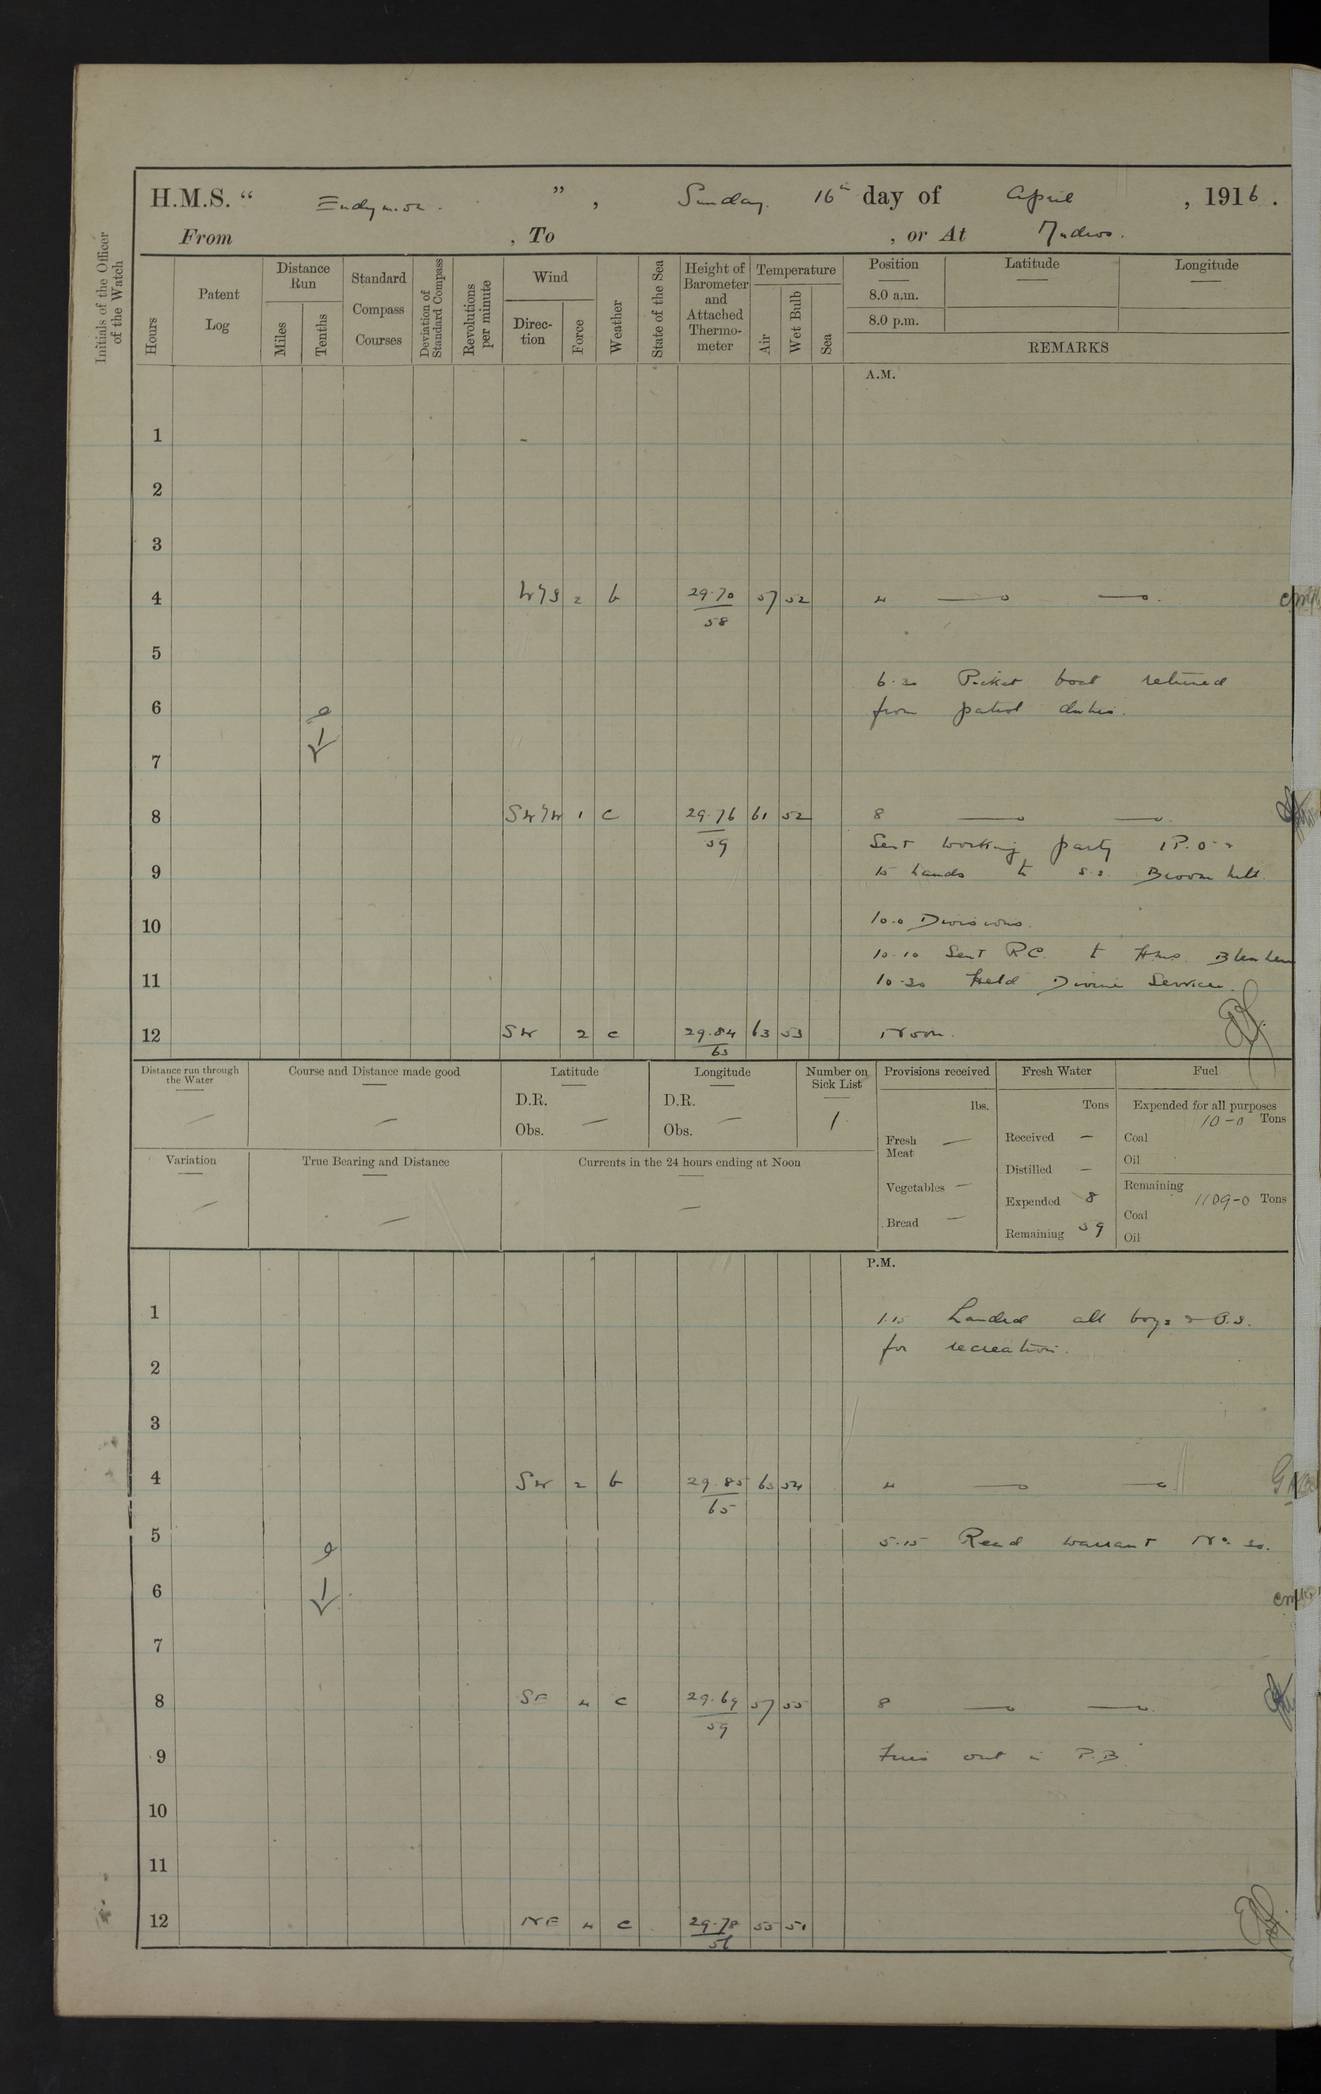 H.M.S. " Endymion. ", Sunday. 16th day of April, 1916.
From , To , or At Mudros.
Initials of the Officer of the Watch
Hours
Patent Log
Distance Run
Miles
Tenths
Standard Compass Courses
Deviation of Standard Compass
Revolutions per minute
Wind
Direction
Force
Weather
State of the Sea
Height of Barometer and Attached Thermometer
Temperature
Air
Wet Bulb
Sea
Position Latitude Longitude
8.0 a.m.
8.0 p.m.
REMARKS
A.M.
1
2
3
4 2 b 29.70 57 52 4
58
5
6.30 Picket boat returned
6 from patrol duties.
7
8 1 c 29.76 61 52 8
59
Sent working party 1 P.O. &
9 15 hands to s.s. Broomhill
10 10.0 Divisions.
10.10 Sent R.C. to HMS. Blenheim
11 10.30 Held Divine Service.
12 SW 2 c 29.84 63 53 Noon.
63
Distance run through the Water —
Course and Distance made good —
Latitude D.R. Obs. —
Longitude D.R. Obs. —
Number on Sick List 1
Provisions received
lbs.
Fresh Meat —
Vegetables —
Bread —
Fresh Water
Tons
Received —
Distilled —
Expended 8
Remaining 59
Fuel
Expended for all purposes
10-0 Tons
Coal
Oil
Remaining
1109-0 Tons
Coal
Oil
Variation —
True Bearing and Distance —
Currents in the 24 hours ending at Noon —
P.M.
1 1.15 Landed all boys & O.S.
for recreation.
2
3
4 SW 2 b 29.85 63 54 4
65
5 5.15 Read warrant No. 30.
6
7
8 SE 4 c 29.69 57 55 8
59
9 out in P.B.
10
11
12 NE 4 c 29.78 55 51